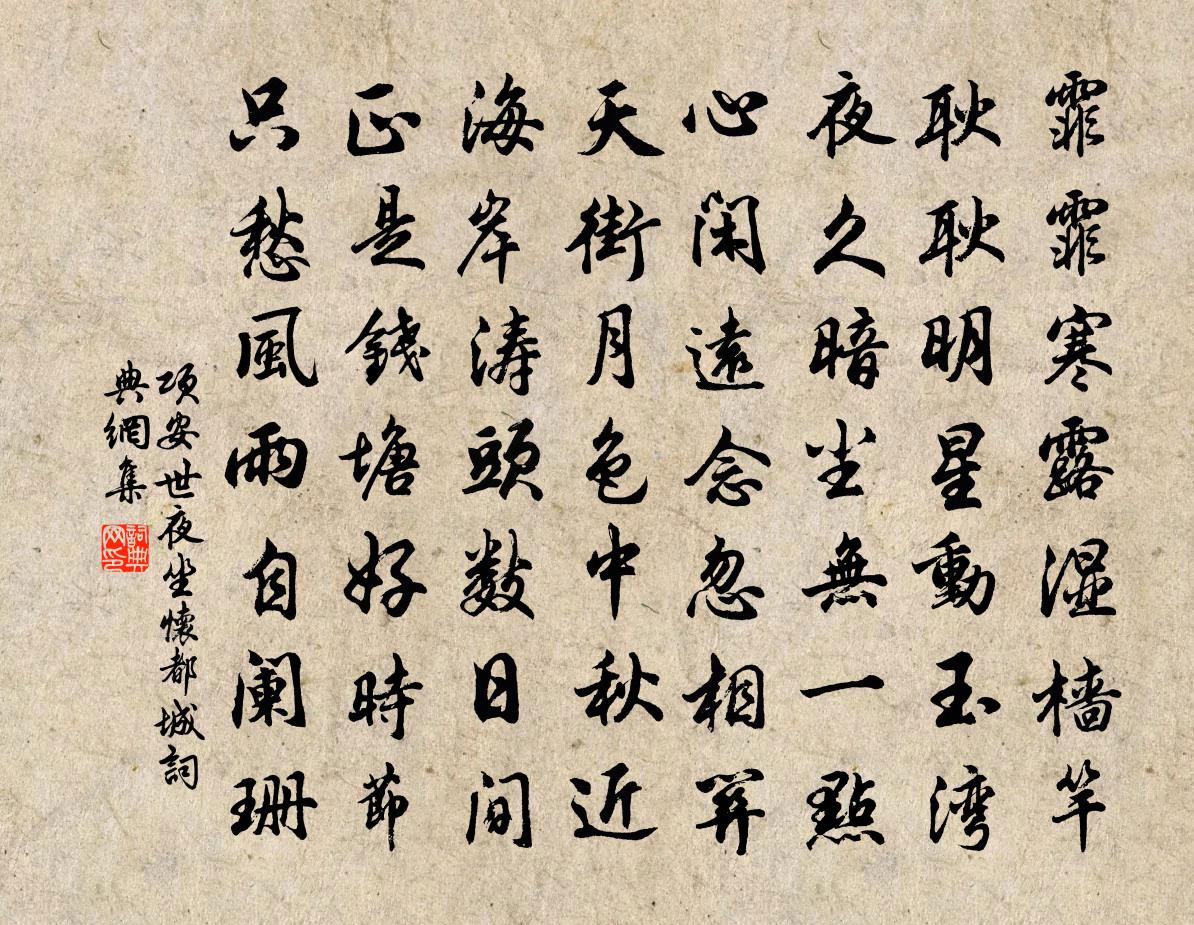 霏霏寒露湿檣竿
耿耿明星動玉湾
夜久暗尘無一點
心閑遠念忽相關
天街月色中秋近
海岸涛頭數日間
正是錢塘好時節
只愁風雨自闌珊
項安世夜坐懷都城詞
典網集
詞典网印